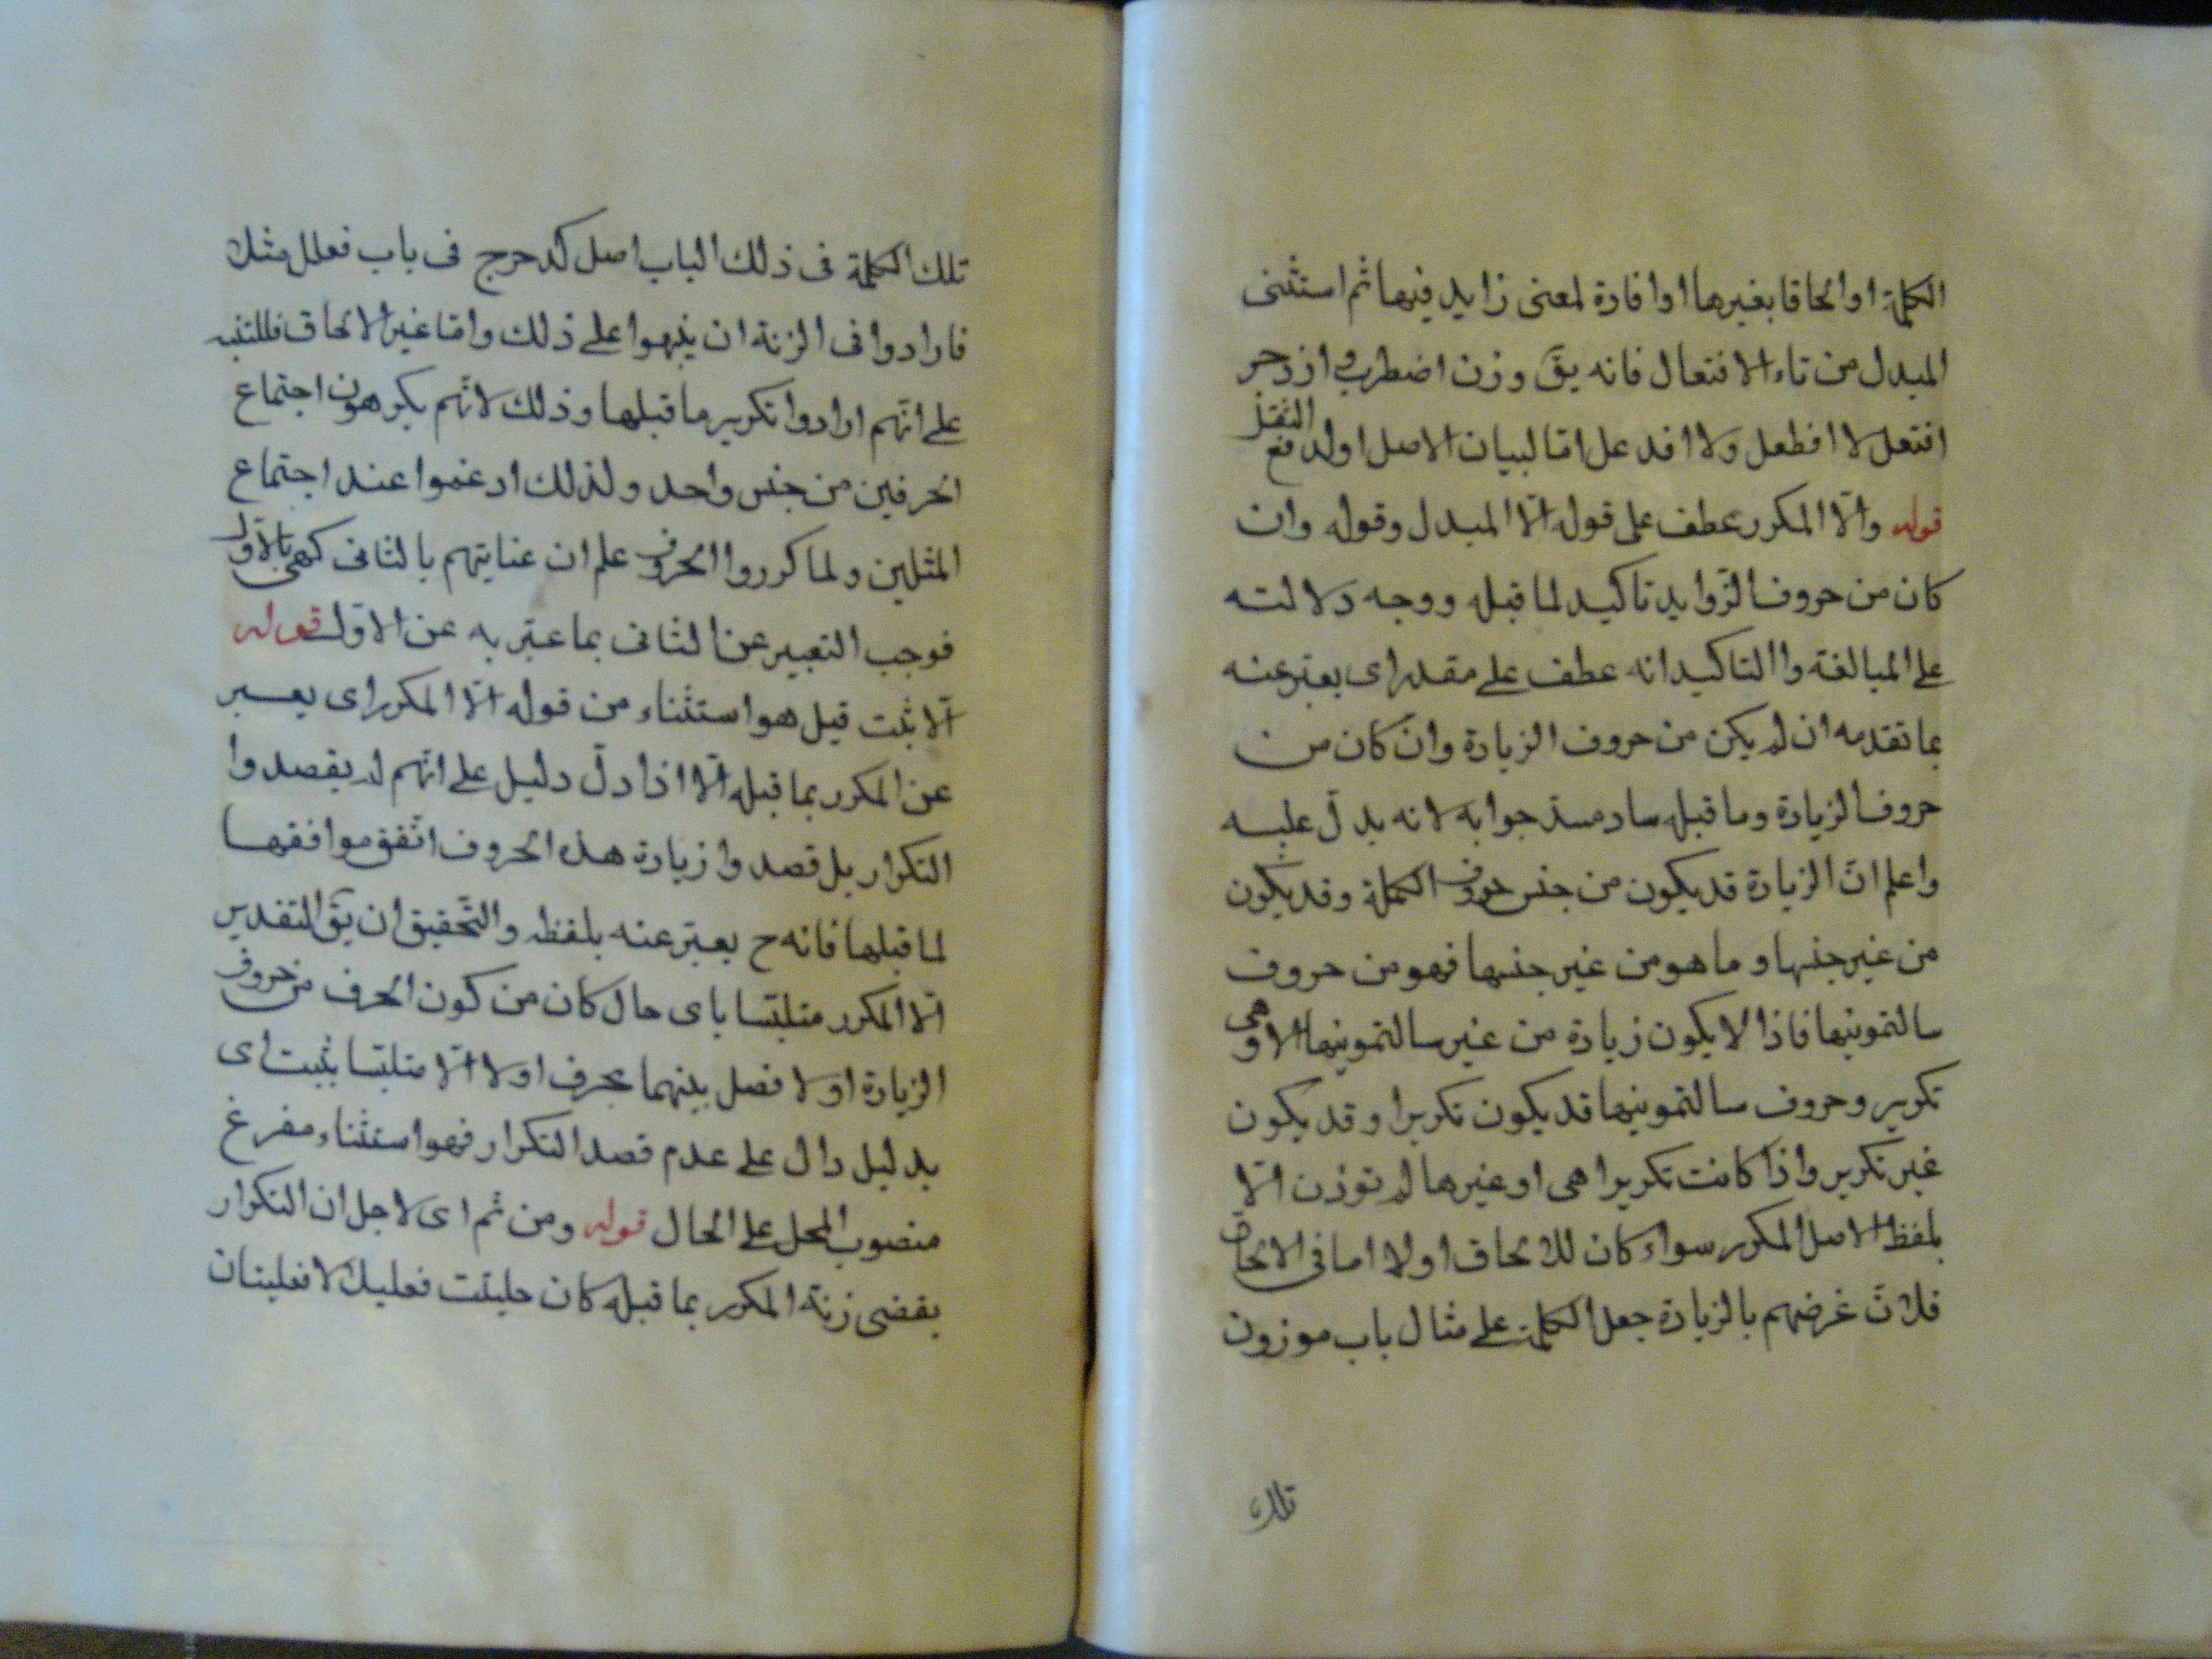 الكلمة او الحاقا بغيرها او افادة لمعنى زايد فيها ثم استثنى
المبدل من تاء الافتعال فانه يق وزن اضطرب و ازدجر
افتعل لا افطعل ولا افدعل اما لبيان الاصل او لدفع الثقل
قوله والّا المكرر عطف على قوله الّا المبدل وقوله وان
كان من حروف الزّوايد تاكيد لما قبله ووجه دلالته
على المبالغة واالتاكيد انه عطف على مقدر اى يعبّر عنه
بما تقدمه ان لم يكن من حروف الزيادة وان كان من
حروف الزيادة وما قبله ساد مسدّ جوابه لانه يدلّ عليه
واعلم انّ الزيادة قد يكون من جنس حروف الكلمة وقد يكون
من غير جنسها و ما هو من غير جنسها فهو من حروف
سالتمونيها فاذا لا يكون زيادة من غير سالتمونيها الا وهى
تكرير وحروف سالتمونيها قد يكون تكريرا وقد يكون
غير تكرير واذا كانت تكريرا هى او غيرها لم توزن الّا
بلفظ الاصل المكرر سواء كان للالحاق او لا اما فى الالحاق
فلانّ غرضهم بالزيادة جعل الكلمة على مثال باب موزون
تلك
تلك الكلمة فى ذلك الباب اصل كدحرج فى باب فعلل مثلا
فارادوا فى الزنة ان ينبهوا على ذلك وامّا غير الالحاق فللتنبيه
على انّهم ارادوا تكرير ما قبلها وذلك لانّهم يكرهون اجتماع
الحرفين من جنس واحد ولذلك ادغموا عند اجتماع
المثلين ولما كرروا الحروف علم ان عنايتهم بالثانى كهى بالاول
فوجب التعبير عن الثانى بما عبّر به عن الاوّل قوله
الّا بثبت قيل هو استثناء من قوله الّا المكرر اى يعبر
عن المكرر بما قبله الّا اذا دلّ دليل على انّهم لم يقصدوا
التكرار بل قصدوا زيادة هذه الحروف اتّفق موافقها
لما قبلها فانه ح يعبّر عنه بلفظه والتّحقيق ان يقّ التقدير
الّا المكرر متلبّسا باى حال كان من كون الحرف من حروف
الزيادة او لا فصل بينهما بحرف او لا الّا متلبّسا بثبت اى
بدليل دال على عدم قصد التكرار فهو استثناء مفرغ
منصوب المحل على الحال قوله ومن ثم اى لاجل ان التكرار
يقضى زنة المكرر بما قبله كان حليتت فعليلا لا فعليتات